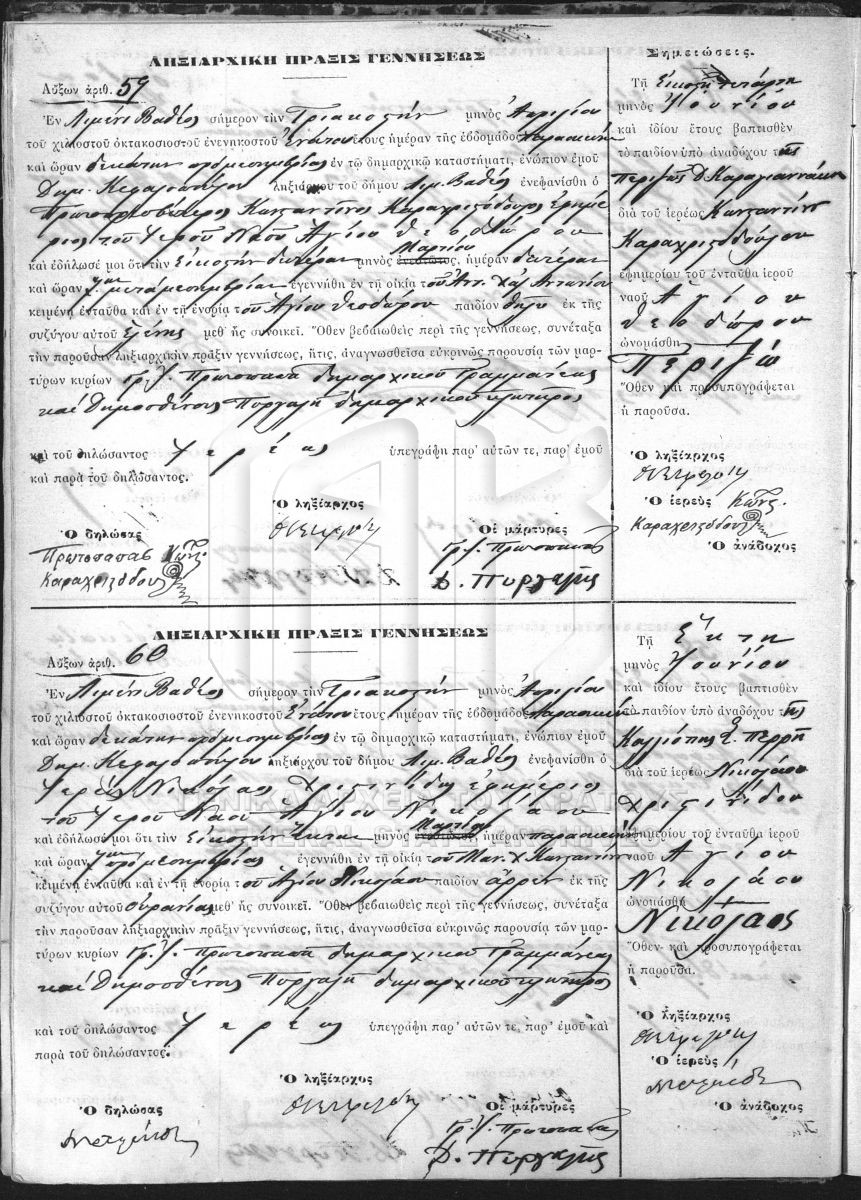 ΛΗΞΙΑΡΧΙΚΗ ΠΡΑΞΙΣ ΓΕΝΝΗΣΕΩΣ
Αὔξων ἀριθ. 59
Ἐν Λιμένι Βαθέος σήμερον τὴν Τριακοστὴν μηνὸς Ἀπριλίου
τοῦ χιλιοστοῦ ὀκτακοσιοστοῦ ἐνενηκοστοῦ Ἐνάτου ἔτους ἡμέραν τῆς ἑβδομάδος Παρασκευὴν
καὶ ὥραν δεκάτην πρὸ μεσημβρίας ἐν τῷ δημαρχικῷ καταστήματι, ἐνώπιον ἐμοῦ
Δημ. ληξιάρχου τοῦ δήμου Λιμ. Βαθέος ἐνεφανίσθη ὁ
Πρωτοπρεσβύτερος Κωνσταντῖνος Καραχριστόδουλος Ἐφημέ
ριος τοῦ Ἱεροῦ Ναοῦ Ἁγίου Θεοδώρου
καὶ ἐδήλωσέ μοι ὅτι τὴν Εἰκοστὴν δευτέραν μηνὸς Μαρτίου, ἡμέραν δευτέραν
καὶ ὥραν μετὰ μεσημβρίαν ἐγεννήθη ἐν τῇ οἰκίᾳ τοῦ Ἀντ. Χ Ἀντωνίου
κειμένῃ ἐνταῦθα καὶ ἐν τῇ ἐνορίᾳ τοῦ Ἁγίου Θεοδώρου παιδίον θῆλυ ἐκ τῆς
συζύγου αὐτοῦ Ἑλένης μεθ' ἧς συνοικεῖ. Ὅθεν βεβαιωθεὶς περὶ τῆς γεννήσεως, συνέταξα
τὴν παροῦσαν ληξιαρχικὴν πρᾶξιν γεννήσεως, ἥτις, ἀναγνωσθεῖσα εὐκρινῶς παρουσίᾳ τῶν μαρ-
τύρων κυρίων Γρ. Ι. Πρωτοπαπᾶ δημαρχικοῦ Γραμματέως
καὶ Δημοσθένους Πυργαλῆ δημαρχικοῦ κλητῆρος
καὶ τοῦ δηλώσαντος Ἱερέως ὑπεγράφη παρ' αὐτῶν τε, παρ' ἐμοῦ
καὶ παρὰ τοῦ δηλώσαντος.
Ὁ ληξίαρχος
Ὁ δηλώσας
Πρωτοπαπας Κωνσ.
Καραχριστόδουλος
Οἱ μάρτυρες
Γρ. Ι. Πρωτοπαπᾶς
Δ. Πυργαλῆς
Σημειώσεις.
Τῇ Εἰκοστῇ τετάρτῃ
μηνὸς Ἰουνίου
καὶ ἰδίου ἔτους βαπτισθὲν
τὸ παιδίον ὑπὸ ἀναδόχου τῆς
Δ. Καραγιαννάκη
διὰ τοῦ ἱερέως Κωνσταντίν
Καραχριστοδούλου
ἐφημερίου τοῦ ἐνταῦθα ἱεροῦ
ναοῦ Ἁγίου
Θεοδώρου
ὠνομάσθη
Ὅθεν καὶ προσυπογράφεται
ἡ παροῦσα.
Ὁ ληξίαρχος
Ὁ ἱερεὺς Κωνσ.
Καραχριστόδουλος
Ὁ ἀνάδοχος
ΛΗΞΙΑΡΧΙΚΗ ΠΡΑΞΙΣ ΓΕΝΝΗΣΕΩΣ
Αὔξων ἀριθ. 60
Ἐν Λιμένι Βαθέος σήμερον τὴν Τριακοστὴν μηνὸς Ἀπριλίου
τοῦ χιλιοστοῦ ὀκτακοσιοστοῦ ἐνενηκοστοῦ Ἐνάτου ἔτους ἡμέραν τῆς ἑβδομάδος Παρασκευὴν
καὶ ὥραν δεκάτην πρὸ μεσημβρίας ἐν τῷ δημαρχικῷ καταστήματι, ἐνώπιον ἐμοῦ
Δημ. ληξιάρχου τοῦ δήμου Λιμ. Βαθέος ἐνεφανίσθη ὁ
Ἱερεὺς Νικόλαος Χρισινίδης Ἐφημέριος
τοῦ Ἱεροῦ Ναοῦ Ἁγίου Νικολάου
καὶ ἐδήλωσέ μοι ὅτι τὴν Εἰκοστὴν Ἕκτην μηνὸς Μαρτίου, ἡμέραν παρασκευὴν
καὶ ὥραν πρὸ μεσημβρίας ἐγεννήθη ἐν τῇ οἰκίᾳ τοῦ Μαν. Χ Κωνσταντίνου
κειμένῃ ἐνταῦθα καὶ ἐν τῇ ἐνορίᾳ τοῦ Ἁγίου Νικολάου παιδίον ἄρρεν ἐκ τῆς
συζύγου αὐτοῦ Οὐρανίας μεθ' ἧς συνοικεῖ. Ὅθεν βεβαιωθεὶς περὶ τῆς γεννήσεως, συνέταξα
τὴν παροῦσαν ληξιαρχικὴν πρᾶξιν γεννήσεως, ἥτις, ἀναγνωσθεῖσα εὐκρινῶς παρουσίᾳ τῶν μαρ-
τύρων κυρίων Γρ. Ι. Πρωτοπαπᾶ δημαρχικοῦ Γραμματέως
καὶ Δημοσθένους Πυργαλῆ δημαρχικοῦ κλητῆρος
καὶ τοῦ δηλώσαντος Ἱερέως ὑπεγράφη παρ' αὐτῶν τε, παρ' ἐμοῦ καὶ
παρὰ τοῦ δηλώσαντος.
Ὁ ληξίαρχος
Ὁ δηλώσας
Οἱ μάρτυρες
Γρ. Ι. Πρωτοπαπᾶς
Δ. Πυργαλῆς
Τῇ Ἕκτῃ
μηνὸς Ἰουνίου
καὶ ἰδίου ἔτους βαπτισθὲν
τὸ παιδίον ὑπὸ ἀναδόχου τῆς
Καλλιόπης Σ. Περρῆ
διὰ τοῦ ἱερέως Νικολάου
Χρισινίδου
ἐφημερίου τοῦ ἐνταῦθα ἱεροῦ
ναοῦ Ἁγίου
Νικολάου
ὠνομάσθη
Νικόλαος
Ὅθεν καὶ προσυπογράφεται
ἡ παροῦσα.
Ὁ ληξίαρχος
Ὁ ἱερεὺς
Ὁ ἀνάδοχος